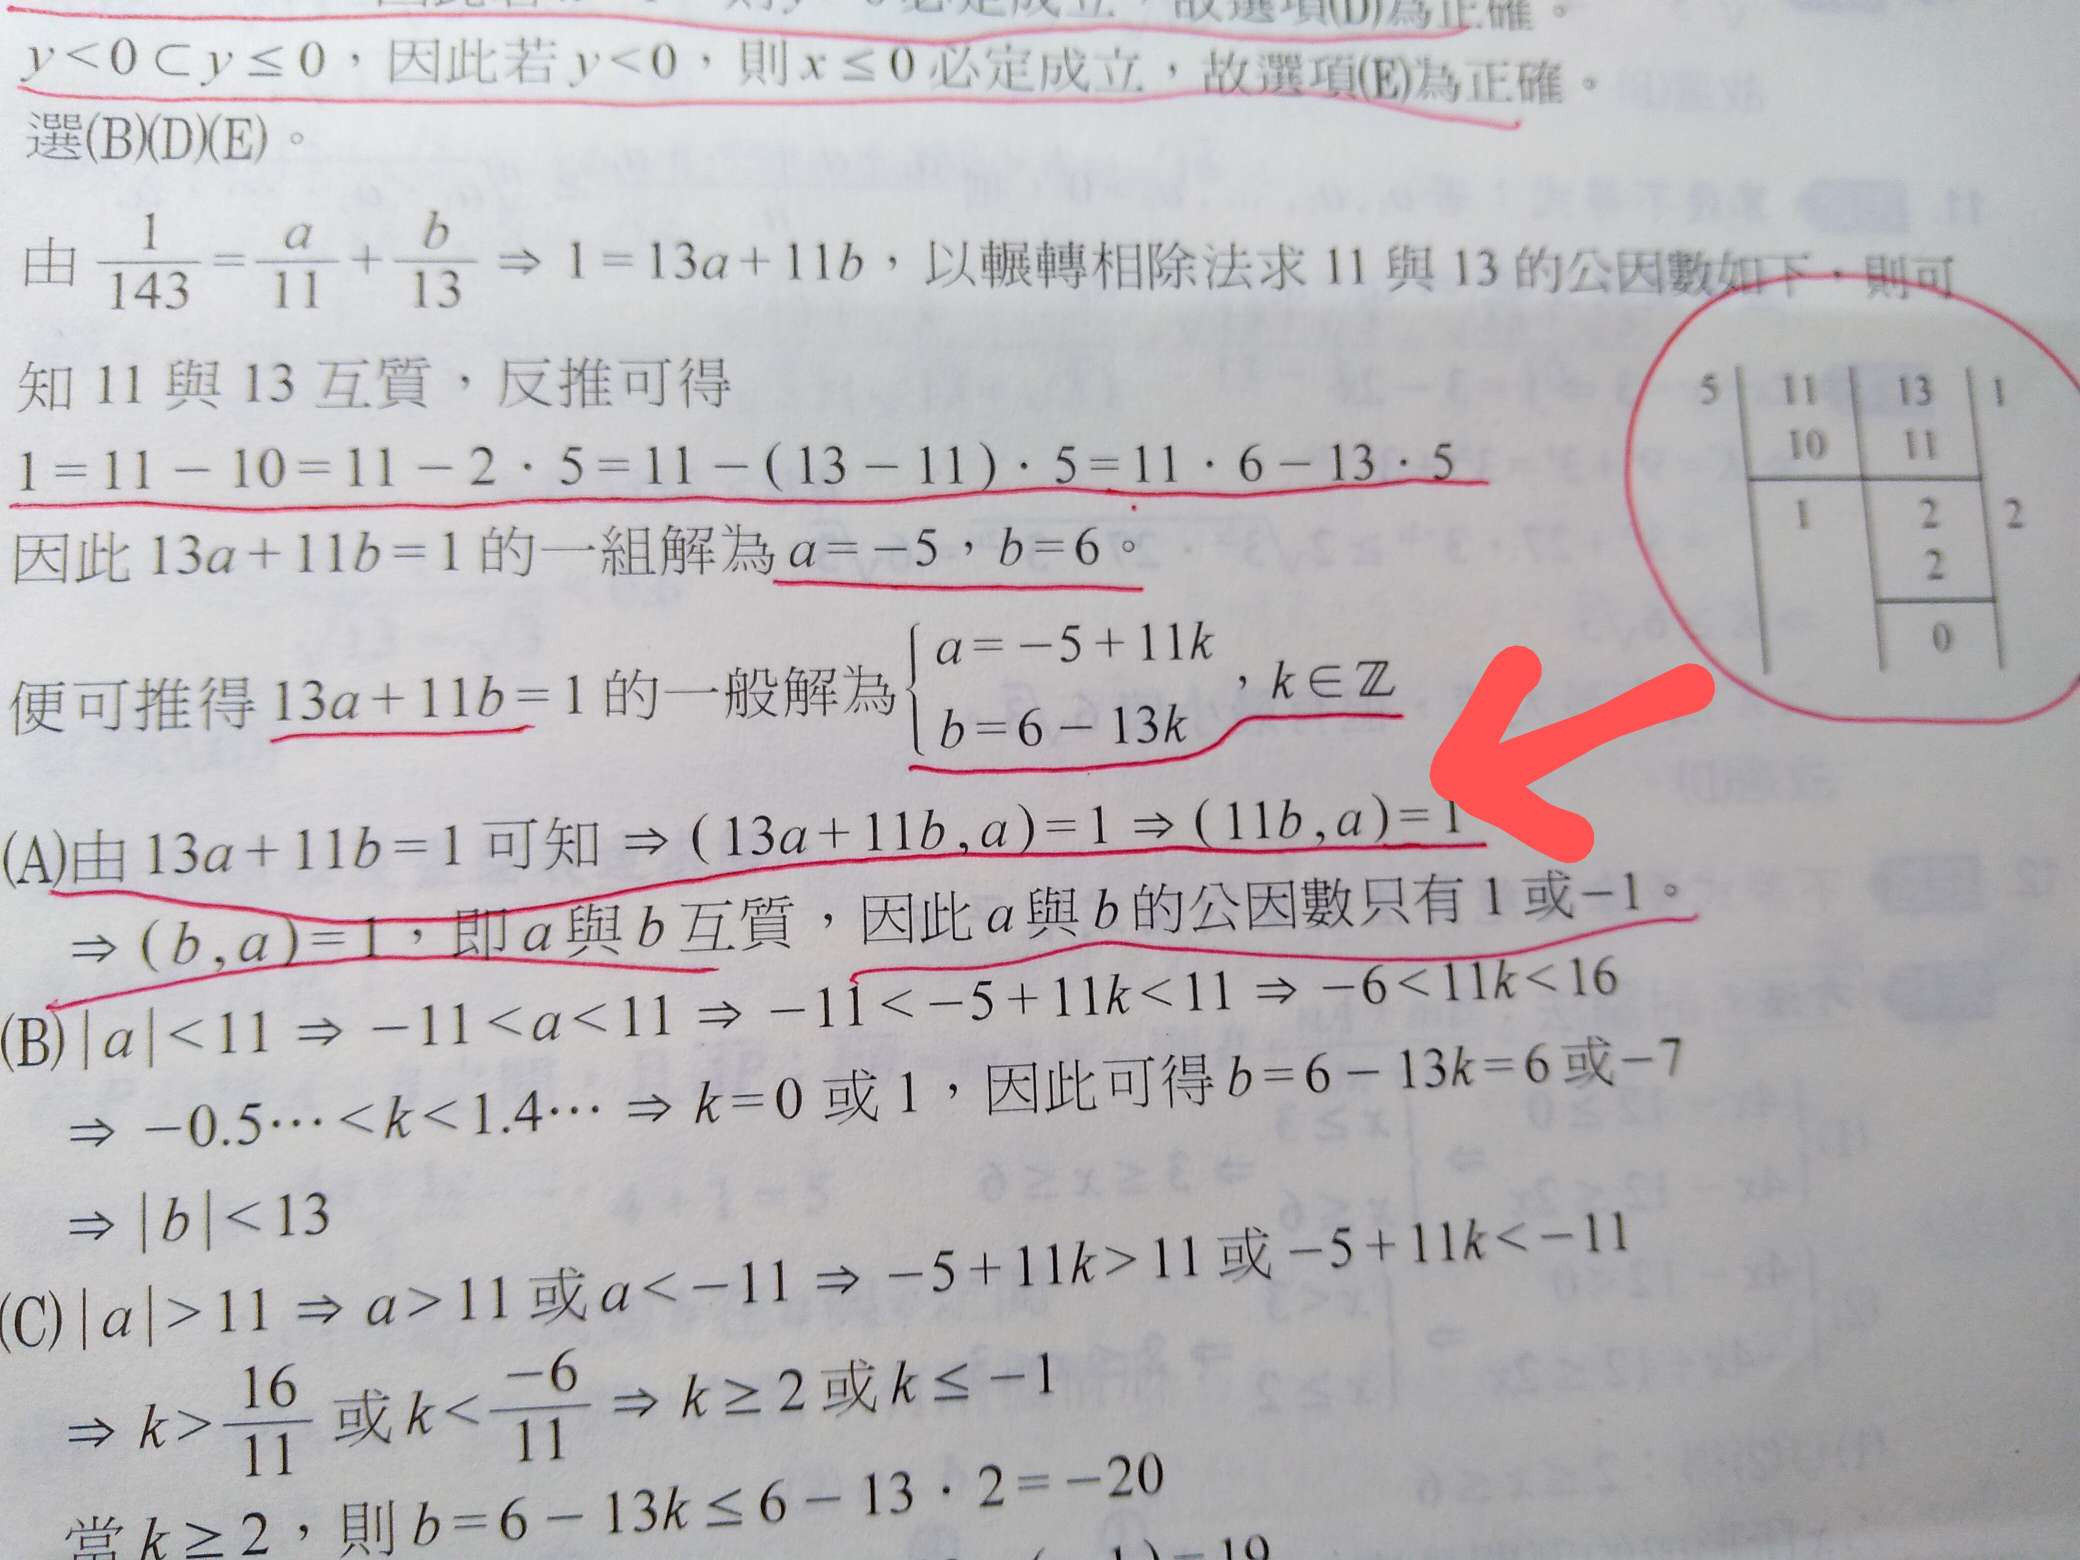 必定成立，故選項(D)為正確。
y<0⊂y≤0，因此若y<0，則x≤0必定成立，故選項(E)為正確。
選(B)(D)(E)。
由 1/143 = a/11 + b/13 ⇒ 1=13a+11b，以輾轉相除法求 11 與 13 的公因數如下，則可
知 11 與 13 互質，反推可得
1=11－10=11－2・5=11－(13－11)・5=11・6－13・5
因此 13a+11b=1 的一組解為 a=－5，b=6。
便可推得 13a+11b=1 的一般解為 { a=－5+11k
b=6－13k ，k∈ℤ
5 | 11 | 13 | 1
10 | 11
1 | 2 | 2
2
0
(A)由 13a+11b=1 可知 ⇒ (13a+11b,a)=1 ⇒ (11b,a)=1
⇒ (b,a)=1，即 a 與 b 互質，因此 a 與 b 的公因數只有 1 或－1。
(B)|a|<11 ⇒ －11<a<11 ⇒ －11<－5+11k<11 ⇒ －6<11k<16
⇒ －0.5…<k<1.4… ⇒ k=0 或 1，因此可得 b=6－13k=6 或－7
⇒ |b|<13
(C)|a|>11 ⇒ a>11 或 a<－11 ⇒ －5+11k>11 或 －5+11k<－11
⇒ k>16/11 或 k<－6/11 ⇒ k≥2 或 k≤－1
當 k≥2，則 b=6－13k≤6－13・2=－20
=19